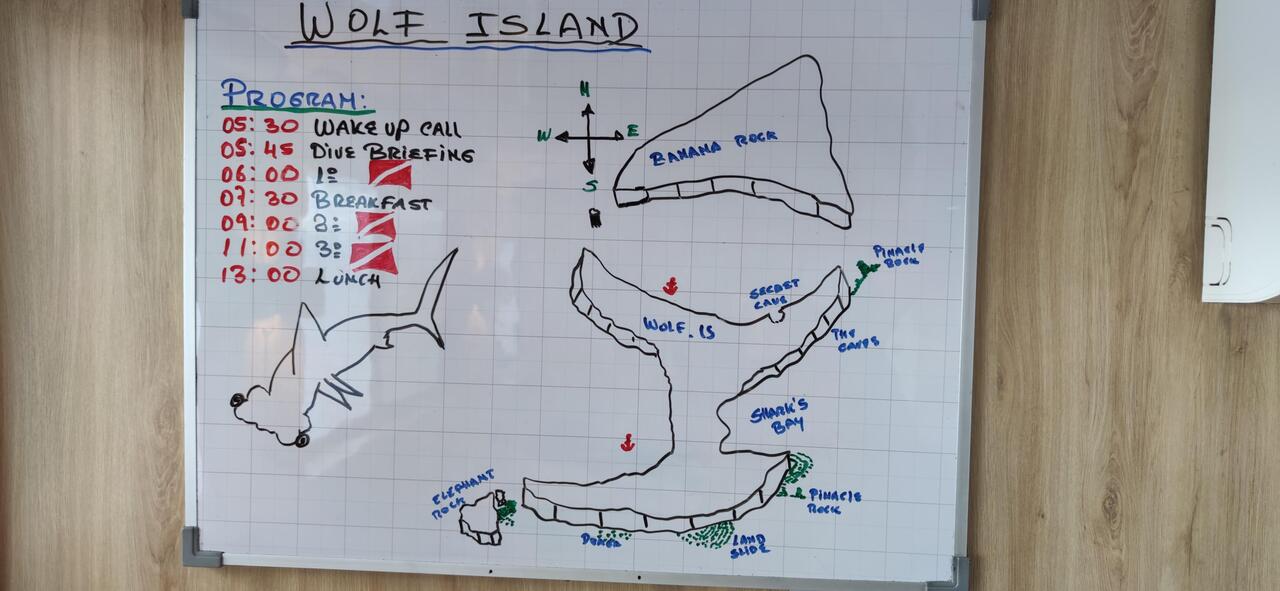 WOLF ISLAND
PROGRAM:
05:30 WAKE UP CALL
05:45 DIVE BRIEFING
06:00 1º
07:30 BREAKFAST
09:00 2º
11:00 3º
13:00 LUNCH
N
W E
S
BANANA ROCK
PINACLE
ROCK
SECRET
CAVE
WOLF.IS
THE
SHARK'S
BAY
ELEPHANT
ROCK
PINACLE
ROCK
LAND
SLIDE